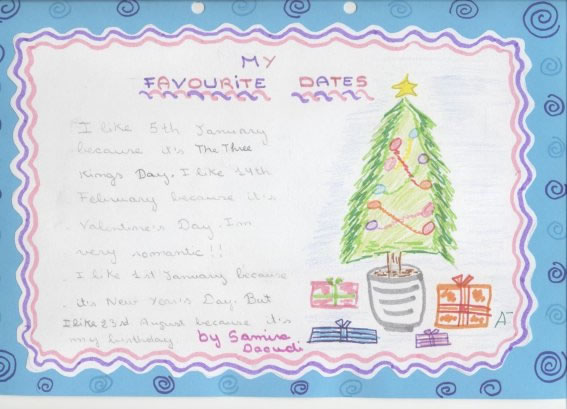 MY
FAVOURITE DATES
I like 5th January
because it's The Three
Kings Day. I like 14th
February because it's
Valentine's Day. I'm
very romantic!!
I like 1st January because
it's New Year's Day. But
I like 23rd August because it's
my birthday
by Samira
Daoudi
A-